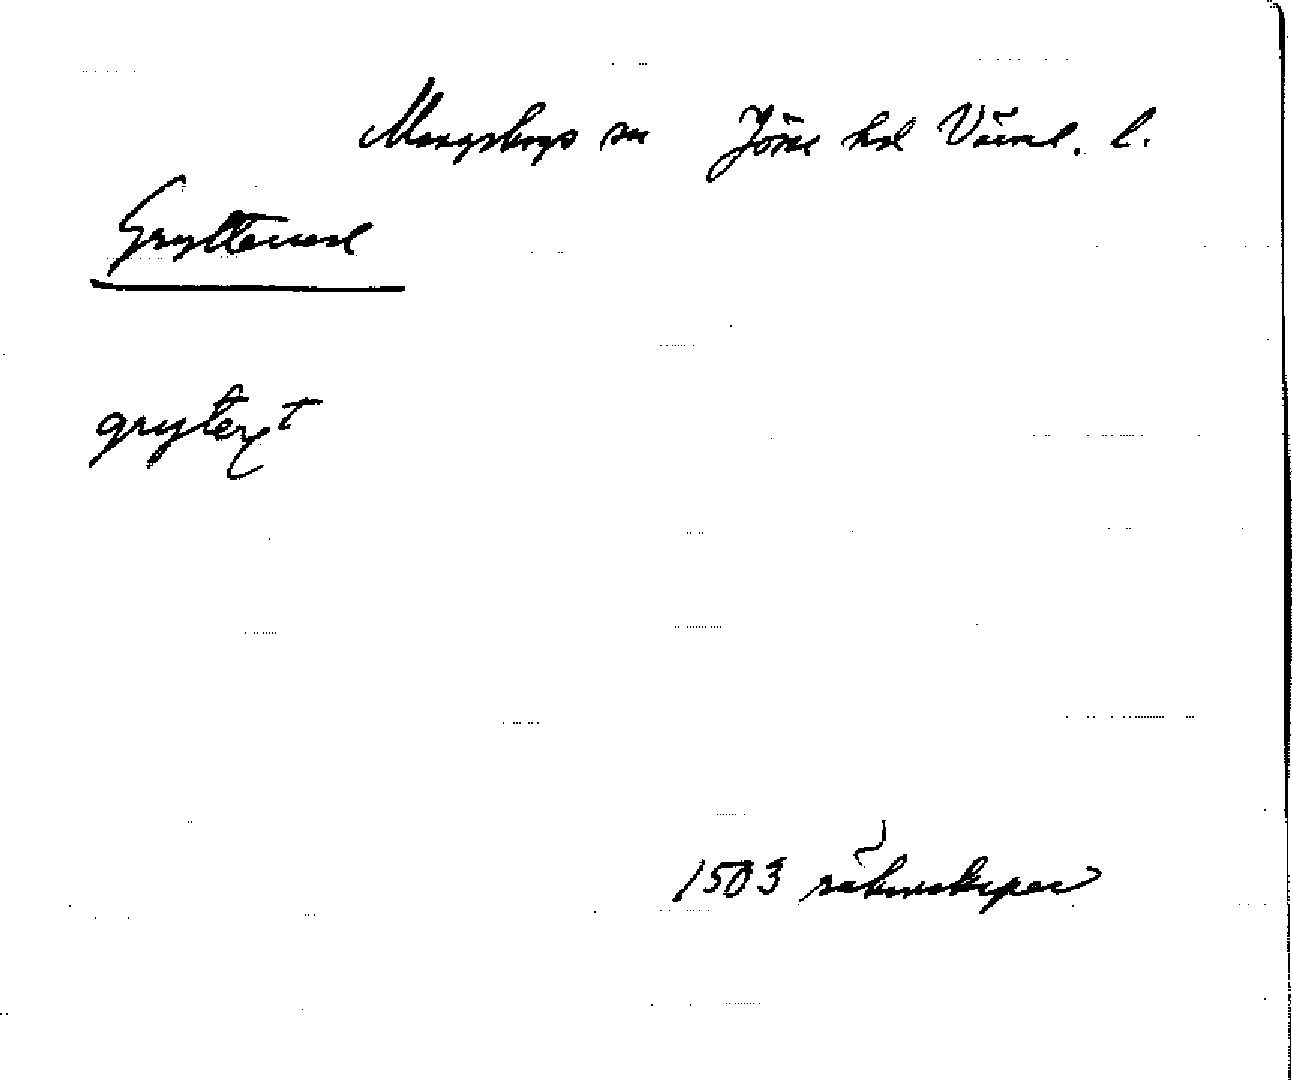 Mangskogs sn Jösse hd Värml. l.
Grytterud
gryteryt
1503 räkenskaper